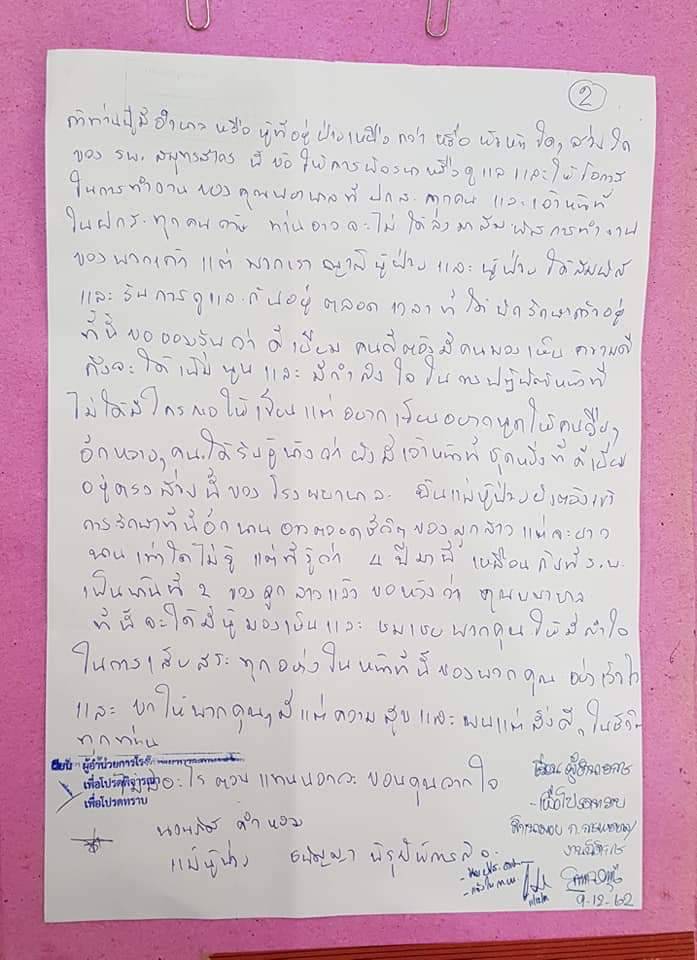 2
ถ้าท่านผู้มีอำนาจ หรือ ผู้ที่อยู่ กว่า หรือ หัวหน้า ใดๆ ส่วนใด
ของ รพ. สมุทรสาคร นี้ ขอ ให้การพิจารณา ดูแล และให้โอกาส
ในการทำงาน ของคุณพยาบาลที่ ทุกคน และ เจ้าหน้าที่
ใน ทุกคน ท่านอาจจะไม่ ได้ลงมาสัมผัสการทำงาน
ของพวกเค้า แต่ พวกเรา ญาติผู้ป่วย และ ผู้ป่วย ได้สัมผัส
และ รับการดูแล กันอยู่ ตลอด เวลาที่ ได้ รักษาตัวอยู่
ที่นี้ ขอยอมรับว่า ดีเยี่ยม คนดีต้องมีคนมองเห็น ความดี
ถึงจะได้เพิ่มพูน และ มีกำลังใจในการปฏิบัติหน้าที่
ไม่ได้มีใครขอให้เขียนแต่ อยากเขียนอยากพูดให้คนอื่นๆ
อีกหลายๆคนได้รับรู้บ้างว่า ยังมีเจ้าหน้าที่ ชุดหนึ่งที่ ดีเยี่ยม
อยู่ตรงส่วนนี้ของโรงพยาบาลค่ะ ฉันแม่ผู้ป่วยยังต้องเข้า
การรักษาที่นี้อีกนาน อาจตลอดชีวิตของลูกสาว แต่จะยาว
นานเท่าใดไม่รู้ แต่ที่รู้ว่า 4 ปีมานี้ เหมือนกับที่ ร.พ.
เป็นบ้านที่ 2 ของลูกสาวแล้ว ขอหวังว่า คุณพยาบาล
ที่นี้จะได้มีผู้มองเห็นและ ชมเชยพวกคุณให้มีกำลังใจ
ในการเสียสละทุกอย่างในหน้าที่นี้ของพวกคุณ
และ ขอให้พวกคุณๆ มีแต่ความสุขและพบแต่สิ่งดีๆ ในชีวิต
ทุกท่าน
เรียน ผู้อำนวยการโรงพยาบาล
เพื่อโปรดพิจารณา
เพื่อโปรดทราบ
อะไร ตอบแทนนอกจะ ขอบคุณจากใจ
แม่ผู้ป่วย
เรียน ผู้อำนวยการ
- เพื่อโปรดทราบ
9-12-62